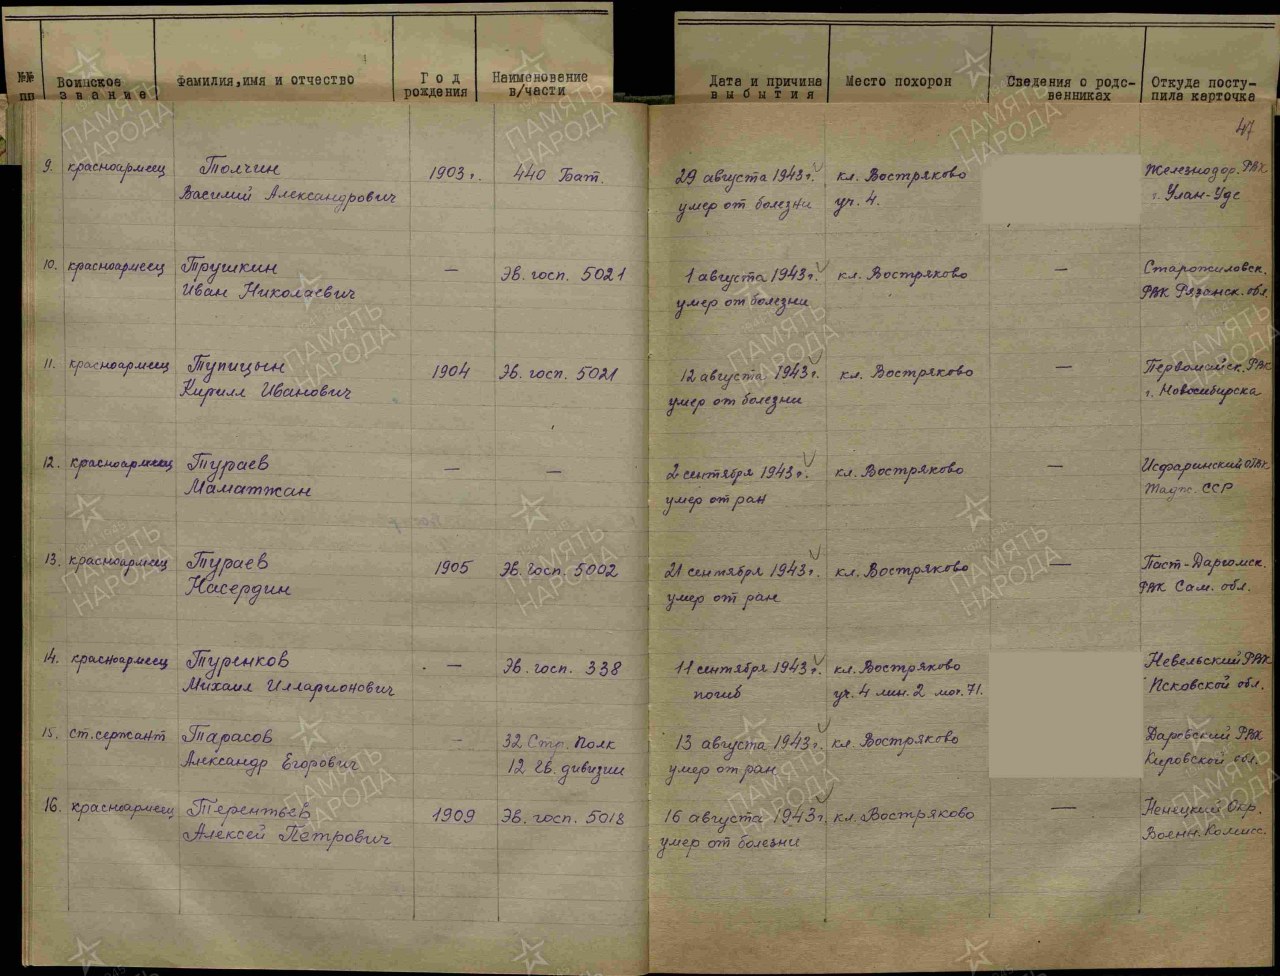 №№ пп
Воинское звание
Фамилия,имя и отчество
Год рождения
Наименование в/части
Дата и причина выбытия
Место похорон
Сведения о родственниках
Откуда поступила карточка
47
9. красноармеец Толчин 1903 г. 440 Бат. 29 августа 1943 г. кл. Востряково Железнодор. РВК
Василий Александрович умер от болезни уч. 4. г. Улан-Удэ
10. красноармеец Трушкин — Эв. госп. 5021 1 августа 1943 г. кл. Востряково — Старожиловск.
Иван Николаевич умер от болезни РВК Рязанск. обл.
11. красноармеец Тупицын 1904 Эв. госп. 5021 12 августа 1943 г. кл. Востряково — Первомайск. РВК
Кирилл Иванович умер от болезни г. Новосибирска
12. красноармеец Тураев — — 2 сентября 1943 г. кл. Востряково — Исфаринский ОРВК
Маматжан умер от ран Тадж. ССР
13. красноармеец Тураев 1905 Эв. госп. 5002 21 сентября 1943 г. кл. Востряково — Паст-Даргомск.
Насердин умер от ран РВК Сам. обл.
14. красноармеец Туренков — Эв. госп. 338 11 сентября 1943 г. кл. Востряково Невельский РВК
Михаил Илларионович погиб уч. 4 лин. 2 мог. 71. Псковской обл.
15. ст. сержант Тарасов — 32 Стр. полк 13 августа 1943 г. кл. Востряково Даровский РВК
Александр Егорович 12 гв. дивизии умер от ран Кировской обл.
16. красноармеец Терентьев 1909 Эв. госп. 5018 16 августа 1943 г. кл. Востряково — Ненецкий Окр.
Алексей Петрович умер от болезни Воен. Комисс.
ПАМЯТЬ НАРОДА